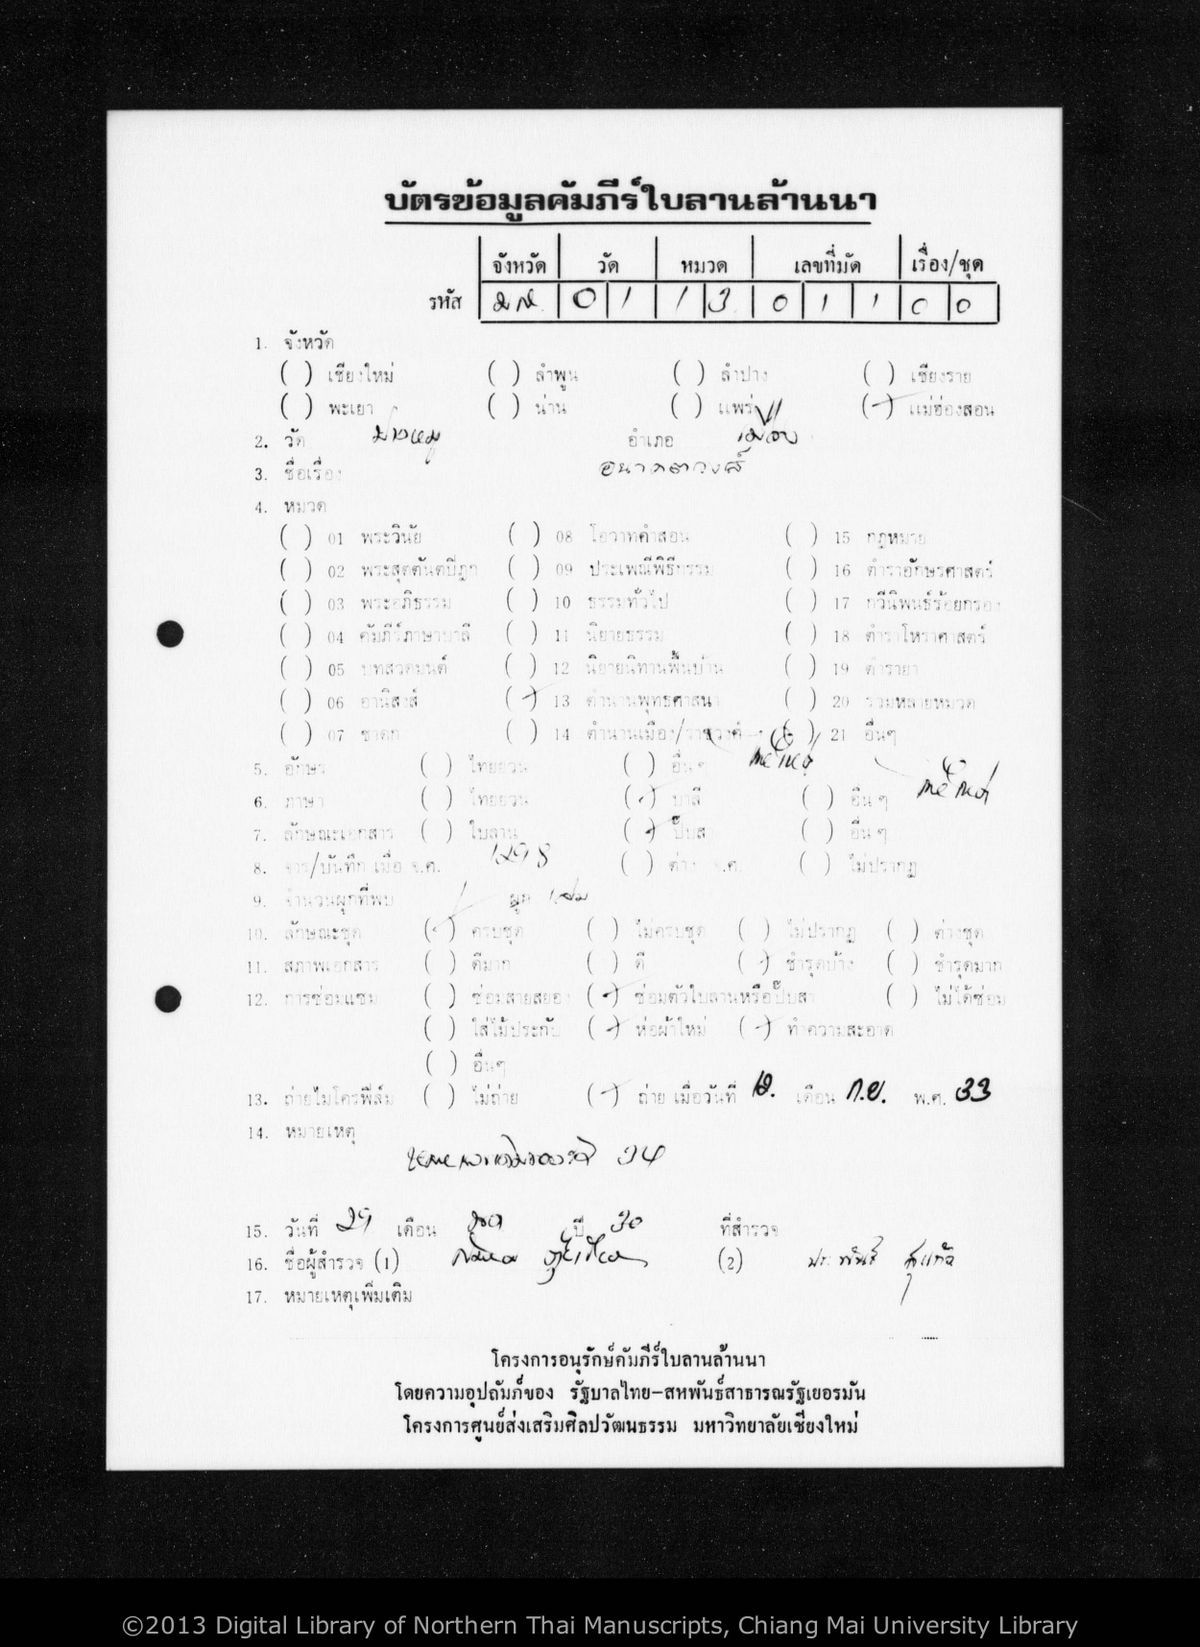 บัตรข้อมูลคัมภีร์ใบลานล้านนา
จังหวัด วัด หมวด เลขที่มัด เรื่อง/ชุด
รหัส มส. 0 1 1 3 0 1 1 0 0
1. จังหวัด
( ) เชียงใหม่ ( ) ลำพูน ( ) ลำปาง ( ) เชียงราย
( ) พะเยา ( ) น่าน ( ) แพร่ (✓) แม่ฮ่องสอน
2. วัด ม่วยต่อ อำเภอ เมือง
3. ชื่อเรื่อง อนาคตวงศ์
4. หมวด
( ) 01 พระวินัย ( ) 08 โอวาทคำสอน ( ) 15 กฎหมาย
( ) 02 พระสุตตันตปิฎก ( ) 09 ประเพณีพิธีกรรม ( ) 16 ตำราอักษรศาสตร์
( ) 03 พระอภิธรรม ( ) 10 ธรรมทั่วไป ( ) 17 กวีนิพนธ์ร้อยกรอง
( ) 04 คัมภีร์ภาษาบาลี ( ) 11 นิยายธรรม ( ) 18 ตำราโหราศาสตร์
( ) 05 บทสวดมนต์ ( ) 12 นิยายนิทานพื้นบ้าน ( ) 19 ตำรายา
( ) 06 อานิสงส์ (✓) 13 ตำนานพุทธศาสนา ( ) 20 รวมหลายหมวด
( ) 07 ชาดก ( ) 14 ตำนานเมือง/ราชวงศ์ ( ) 21 อื่นๆ
5. อักษร ( ) ไทยยวน ( ) อื่นๆ
6. ภาษา ( ) ไทยยวน (✓) บาลี ( ) อื่นๆ
7. ลักษณะเอกสาร ( ) ใบลาน (✓) ปั๊บสา ( ) อื่นๆ
8. จาร/บันทึก เมื่อ จ.ศ. 1298 ( ) ต่าง จ.ศ. ( ) ไม่ปรากฏ
9. จำนวนผูกที่พบ 1 ผูก เล่ม
10. ลักษณะชุด (✓) ครบชุด ( ) ไม่ครบชุด ( ) ไม่ปรากฏ ( ) ต่างชุด
11. สภาพเอกสาร ( ) ดีมาก ( ) ดี (✓) ชำรุดบ้าง ( ) ชำรุดมาก
12. การซ่อมแซม ( ) ซ่อมสายสยอง (✓) ซ่อมตัวใบลานหรือปั๊บสา ( ) ไม่ได้ซ่อม
( ) ใส่ไม้ประกับ (✓) ห่อผ้าใหม่ (✓) ทำความสะอาด
( ) อื่นๆ
13. ถ่ายไมโครฟิล์ม ( ) ไม่ถ่าย (✓) ถ่าย เมื่อวันที่ 12. เดือน ก.ย. พ.ศ. 33
14. หมายเหตุ
34
15. วันที่ 29 เดือน ตุลา ปี 30 ที่สำรวจ
16. ชื่อผู้สำรวจ (1) (2) ประพันธ์ สุแก้ว
17. หมายเหตุเพิ่มเติม
โครงการอนุรักษ์คัมภีร์ใบลานล้านนา
โดยความอุปถัมภ์ของ รัฐบาลไทย-สหพันธ์สาธารณรัฐเยอรมัน
โครงการศูนย์ส่งเสริมศิลปวัฒนธรรม มหาวิทยาลัยเชียงใหม่
©2013 Digital Library of Northern Thai Manuscripts, Chiang Mai University Library